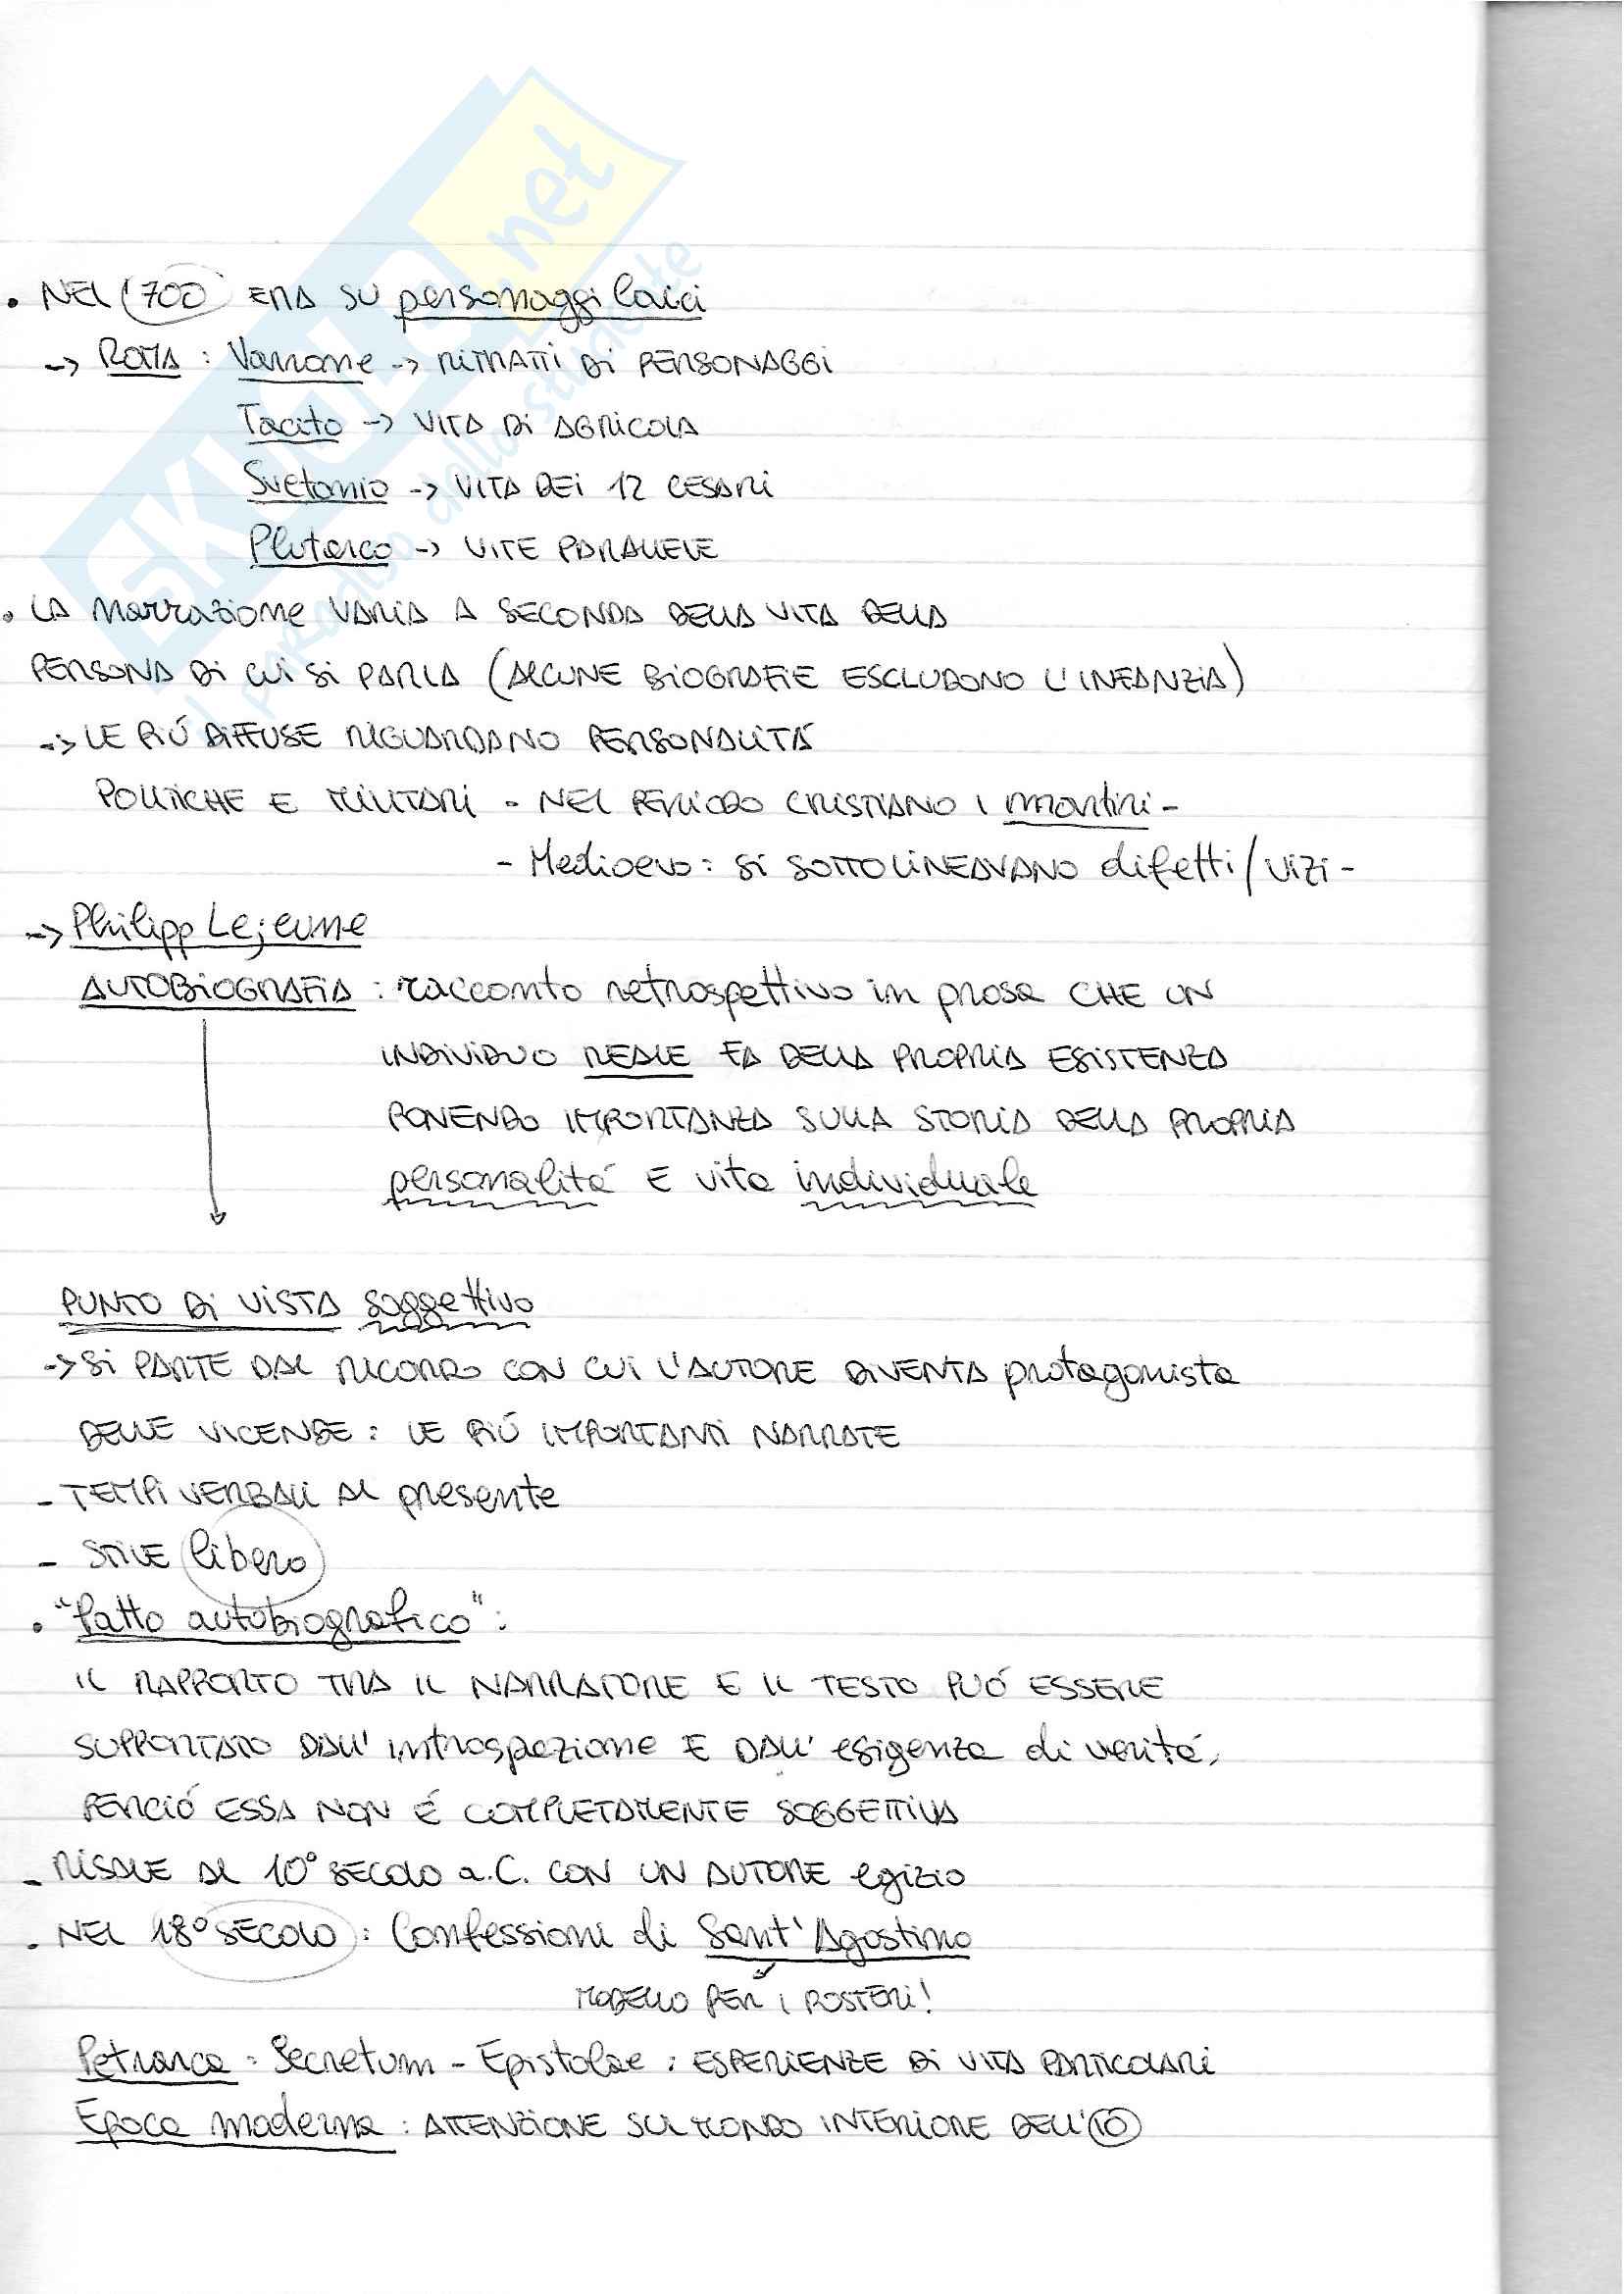 . NEL '700 ERA SU personaggi laici
-> ROMA : Varrone -> RITRATTI DI PERSONAGGI
Tacito -> VITA DI AGRICOLA
Svetonio -> VITA DEI 12 CESARI
Plutarco -> VITE PARALLELE
. LA NarraZioNe VARIA A SECONDA DELLA VITA DELLA
PERSONA DI CUI SI PARLA (ALCUNE BIOGRAFIE ESCLUDONO L'INFANZIA)
-> LE PIÚ DIFFUSE RIGUARDANO PERSONALITÁ
POLITICHE E MILITARI - NEL PERIODO CRISTIANO I martiri -
- Medioevo : SI SOTTOLINEAVANO difetti/vizi -
-> Philipp Lejeune
AUTOBIOGRAFIA : racconto retrospettivo in prosa CHE UN
INDIVIDUO REALE FA DELLA PROPRIA ESISTENZA
PONENDO IMPORTANZA SULLA STORIA DELLA PROPRIA
personalitá E vita individuale
PUNTO DI VISTA soggettivo
-> SI PARTE DAL RICORDO CON CUI L'AUTORE DIVENTA protagonista
DELLE VICENDE : LE PIÚ IMPORTANTI NARRATE
- TEMPI VERBALI AL presente
- STILE libero
. "Patto autobiografico" :
IL RAPPORTO TRA IL NARRATORE E IL TESTO PUÓ ESSERE
SUPPORTATO DALL' introspezione E DALL' esigenza di veritá,
PERCIÓ ESSA NON É COMPLETAMENTE SOGGETTIVA
- RISALE AL 10° SECOLO a.C. CON UN AUTORE egizio
. NEL 18° SECOLO : Confessioni di Sant'Agostino
MODELLO PER I POSTERI!
Petrarca : Secretum - Epistolae : ESPERIENZE DI VITA PARTICOLARI
Epoca moderna : ATTENZIONE SUL MONDO INTERIORE DELL'IO
SKUOLA.net
il paradiso dello studente